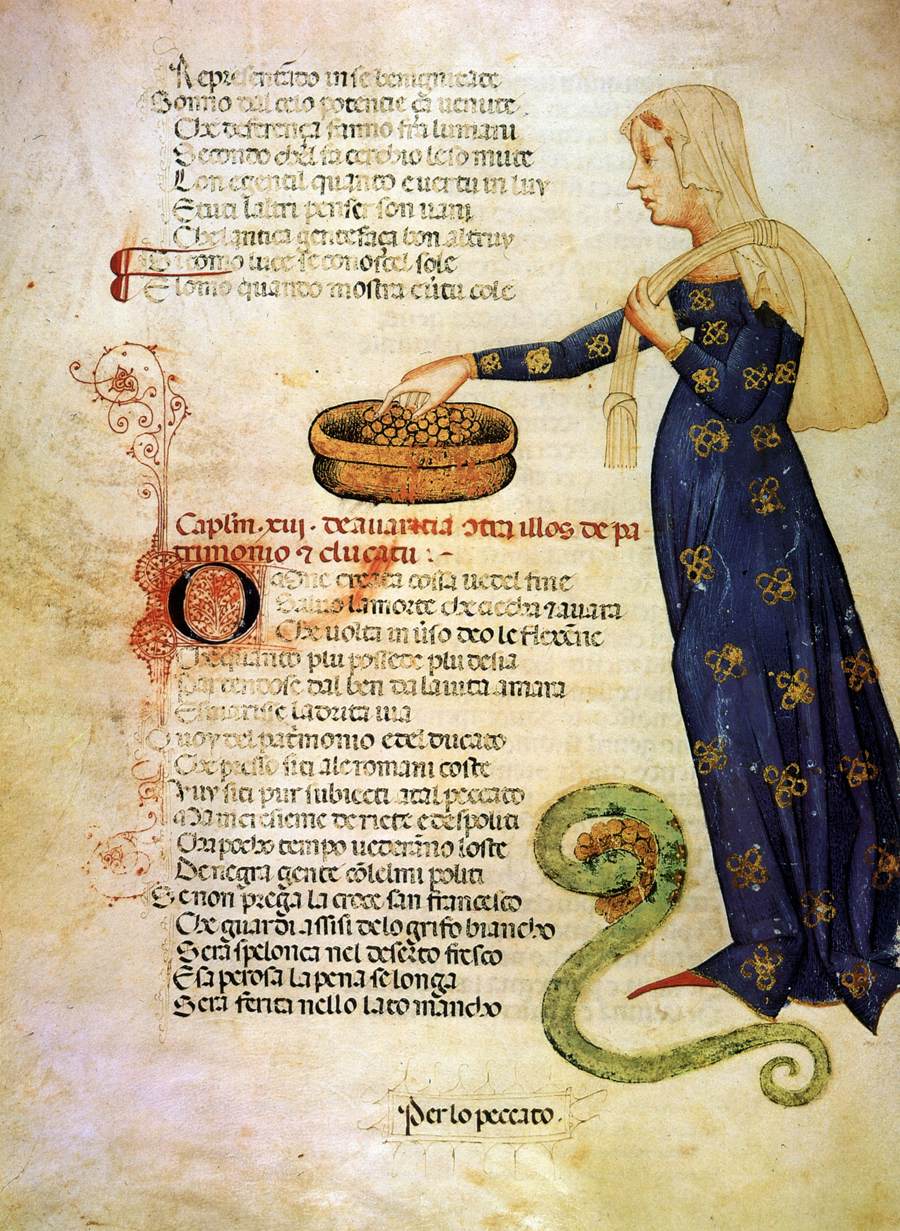 Representādo in se benignitate
Sonno dal celo potencie ꝗ̄ uenute
Che deferença fanno fra lumani
Secondo chel sa cerchio leso mute
Lon e gentil quanto e uertu in luy
E tuti laltri penser son uani
Che lantica gente faça bon altruy
Sicomo luce se conosce l sole
E lomo quando mostra ciū tu cole
Caplm̄ · xuij · de auaritia ↄtra illos de pa
trimonio ⁊ ducatu : ~
O Gne creata cossa uedel fine
Saluo la morte che ciecha ⁊ auara
Che uolta in ūso deo le
Che quanto plu possede plu desia
Partendose dal ben da la uita amara
E smarisse la drita uia
O uoy del patrimonio e del ducato
Che presso siti ale romani coste
Vuy siti pur subiecti atal peccato
de riete e de spoliti
Cha pocho tempo uederāno loste
De negra gente cō lelmi politi
Se non prega la croce san francesco
Che guardi assisi delo grifo biancho
Serā spelonca nel deserto fresco
E sa perosa la pena se longa
Serā ferita nello lato mancho
Per lo peccato ·